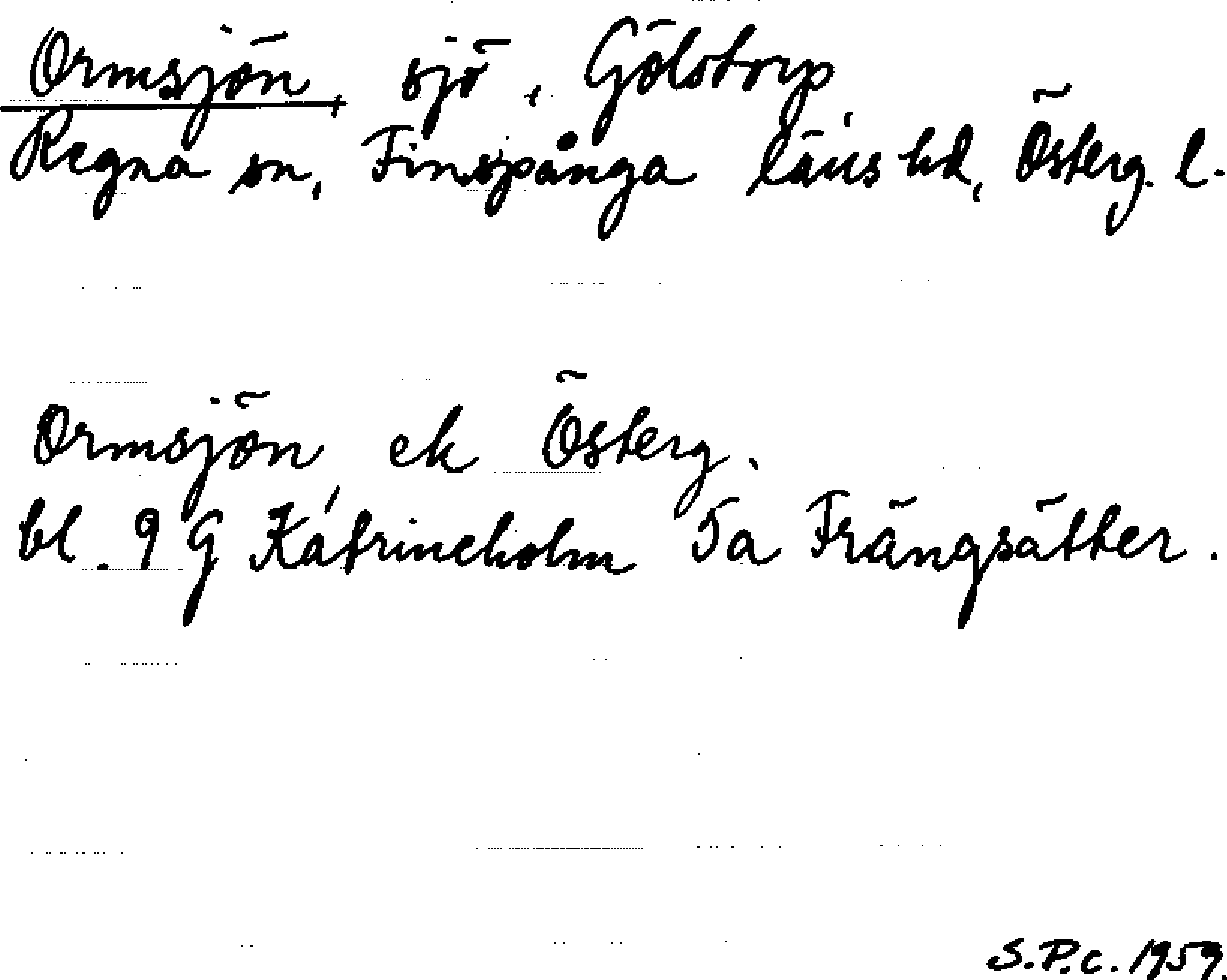 Ormsjön, sjö, Gölstorp,
Regna sn, Finspånga läns hd, Österg. l.
Ormsjön ek Österg.
bl. 9 G Katrineholm 5a Frängsätter.
S.P.c. 1959.